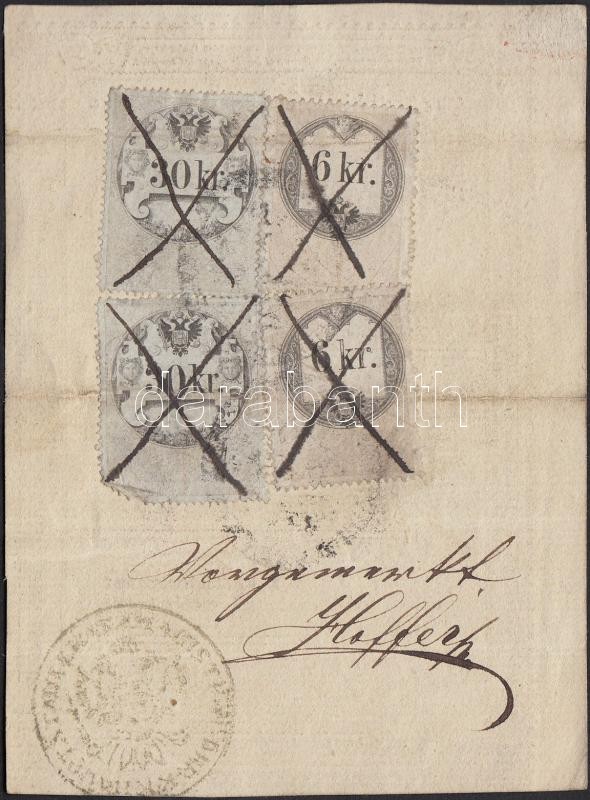 30 kr. 6 kr.
30 kr. 6 kr.
darabanth
Vorgemerkt
Hoffer